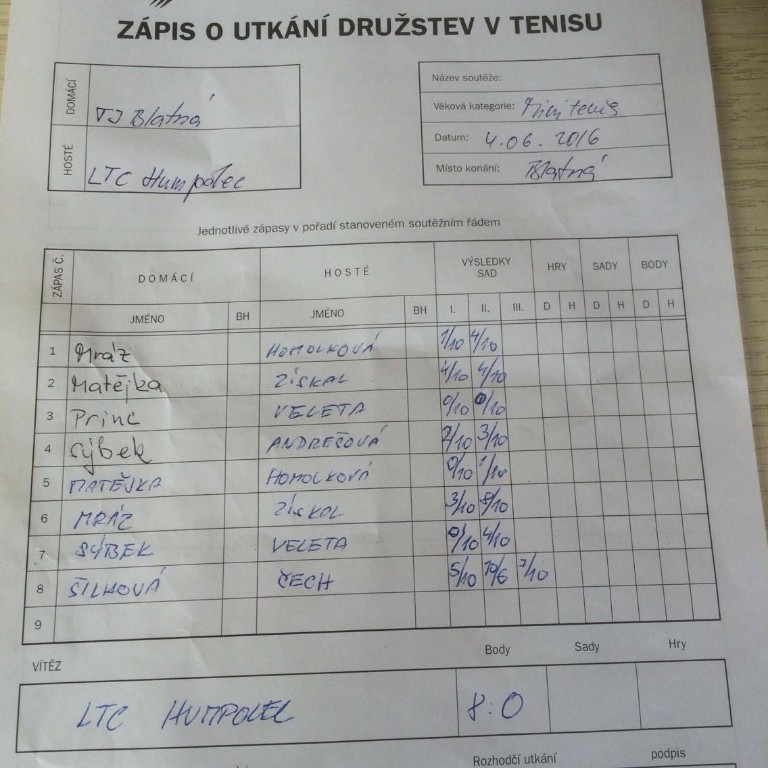 ZÁPIS O UTKÁNÍ DRUŽSTEV V TENISU
DOMÁCÍ TJ Blatná
HOSTÉ LTC Humpolec
Název soutěže:
Věková kategorie: Mini tenis
Datum: 4.06.2016
Místo konání: Blatná
Jednotlivé zápasy v pořadí stanoveném soutěžním řádem
ZÁPAS Č. DOMÁCÍ HOSTÉ VÝSLEDKY SAD HRY SADY BODY
JMÉNO BH JMÉNO BH I. II. III. D H D H D H
1 Mráz HOMOLKOVÁ 1/10 4/10
2 Matějka ZÍSKAL 4/10 4/10
3 Princ VELETA 0/10 0/10
4 Sýbek ANDREŠOVÁ 2/10 3/10
5 MATĚJKA HOMOLKOVÁ 0/10 1/10
6 MRÁZ ZÍSKAL 3/10 8/10
7 SÝBEK VELETA 0/10 4/10
8 ŠILHOVÁ ČECH 5/10 10/6 7/10
9
VÍTĚZ Body Sady Hry
LTC HUMPOLEC 8:0
Rozhodčí utkání podpis